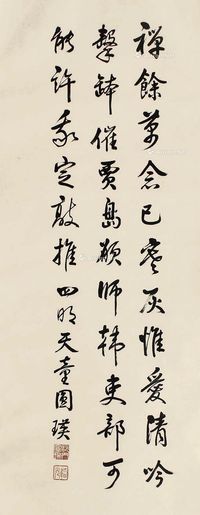 禪餘萬念已寒灰惟愛清吟
擊鉢催賈島願師韓吏部可
能許我定敲推四明天童圓瑛